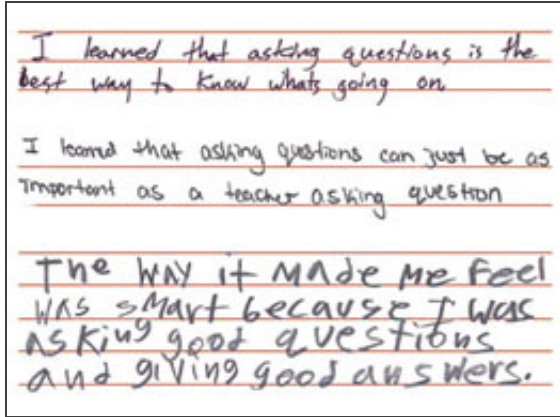 I learned that asking questions is the
best way to know whats going on
I learned that asking questions can just be as
important as a teacher asking question
The way it made me feel
was smart because I was
asking good questions
and giving good answers.